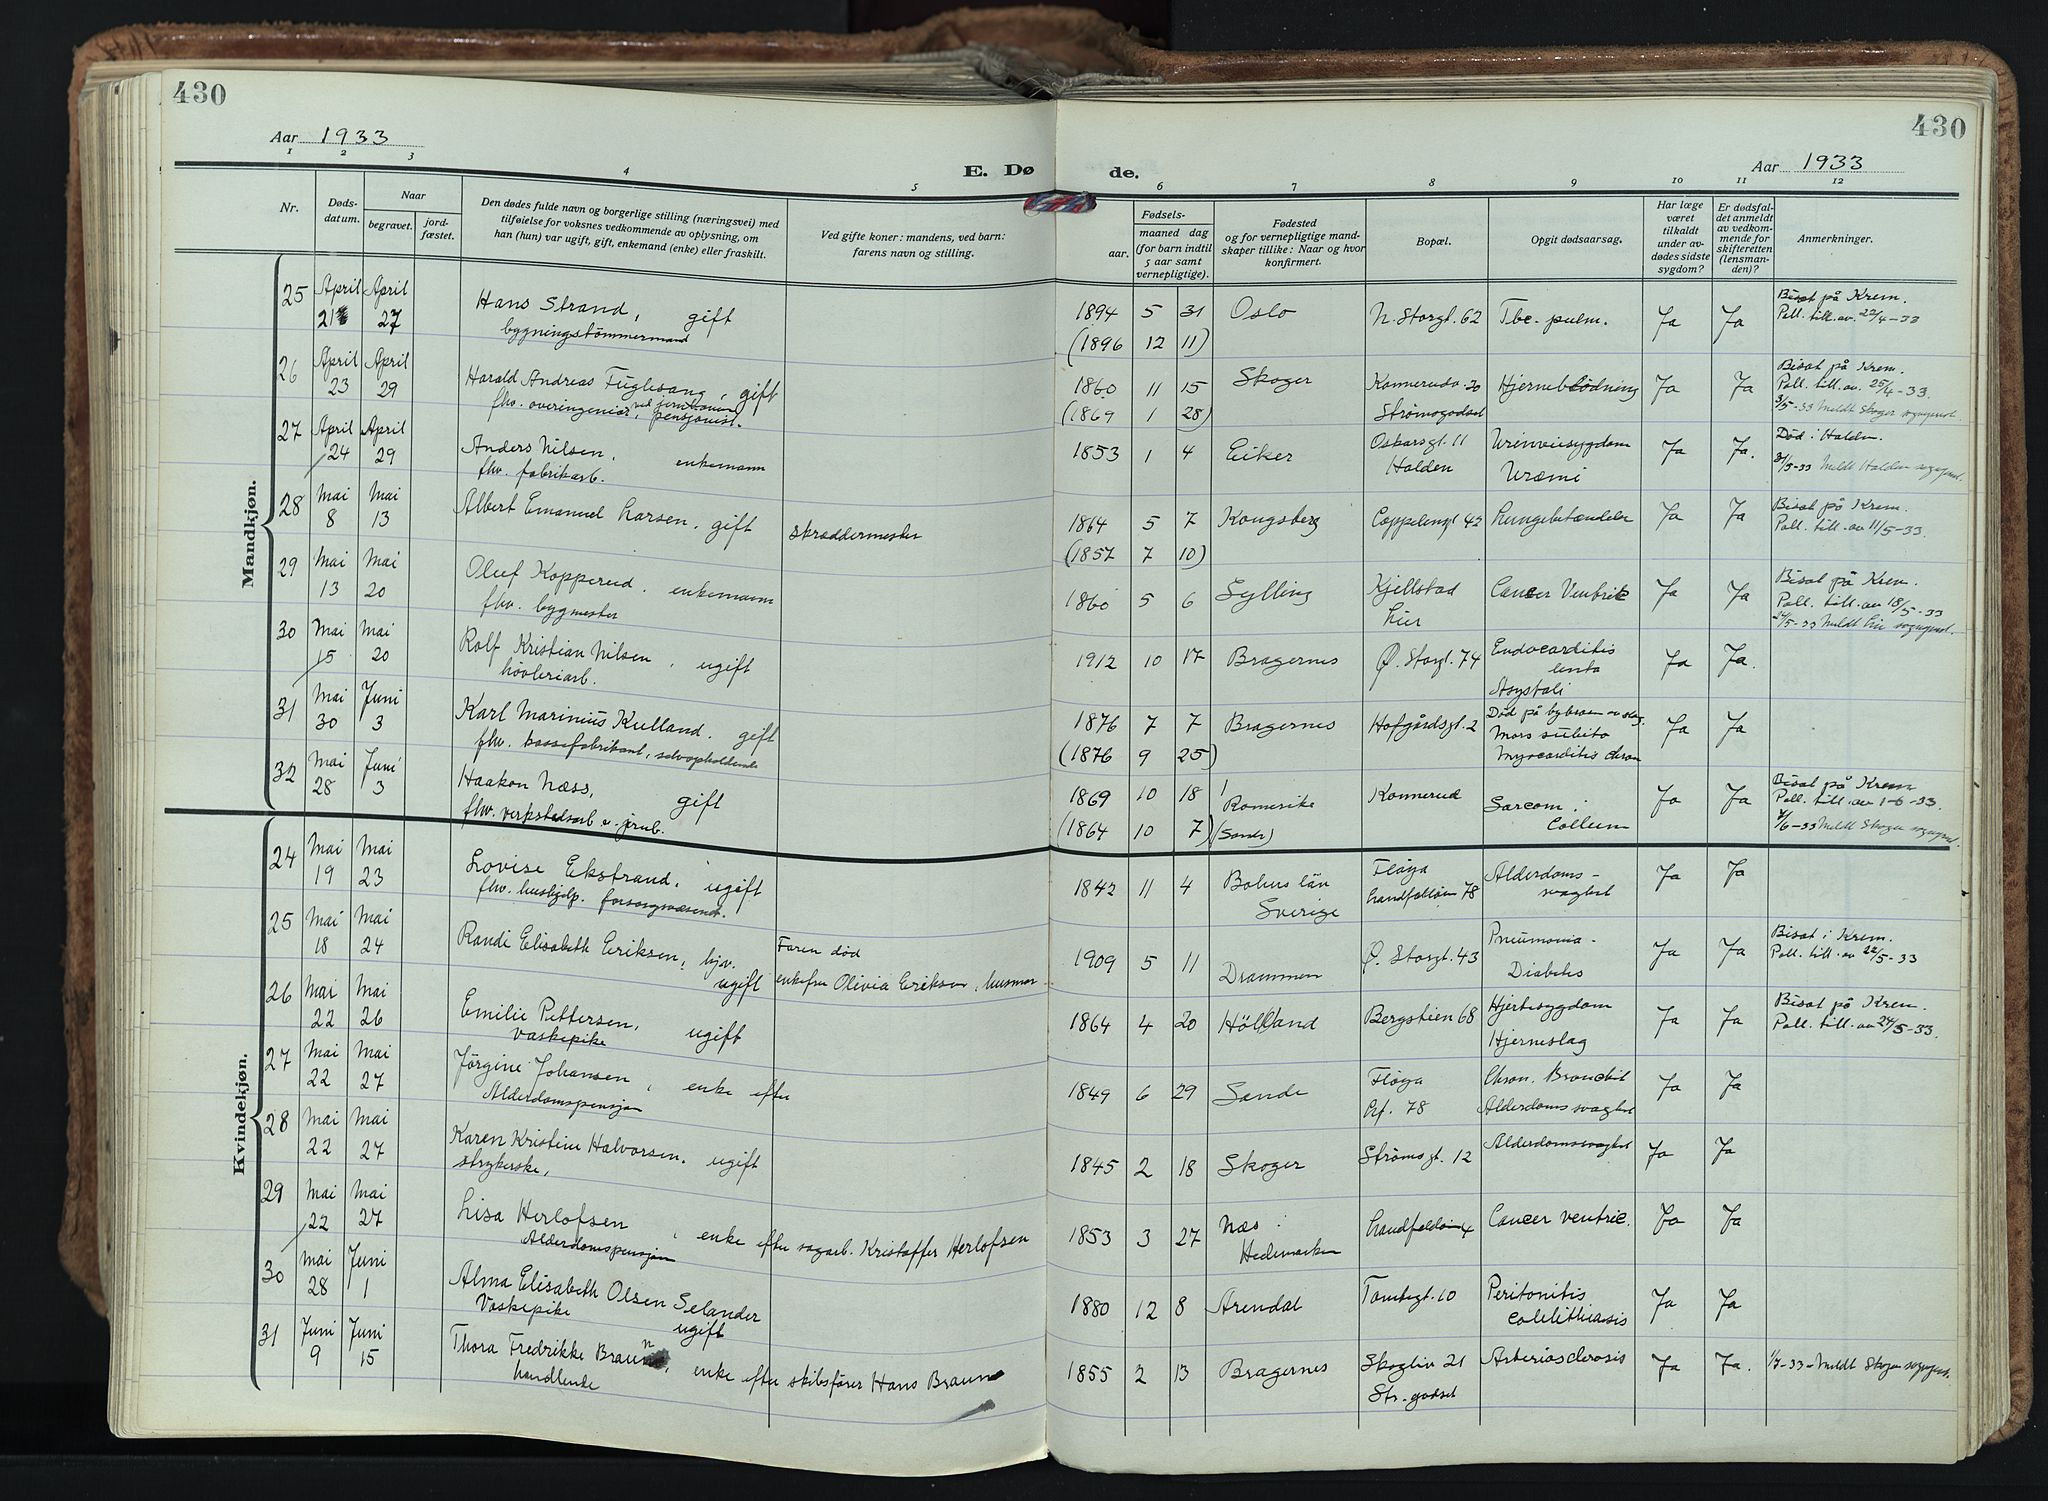 430
Aar 1933
E. Dø
1 2 3 4 5
Nr.
Døds-
datum.
Naar
begravet.
jord-
fæstet.
Den dødes fulde navn og borgerlige stilling (næringsvei) med
tilføielse for voksnes vedkommende av oplysning, om
han (hun) var ugift, gift, enkemand (enke) eller fraskilt.
Ved gifte koner: mandens, ved barn:
farens navn og stilling.
Mandkjøn.
25 April 21 April 27 Hans Strand, gift
bygningstømmermand
26 April 23 April 29 Harald Andreas Fuglesang, gift
fhv. overingeniør ved jernbanen, pensjonist.
27 April 24 April 29 Anders Nilsen, enkemann
fhv. fabrikarb.
28 Mai 8 Mai 13 Albert Emanuel Larsen, gift skræddermester
29 Mai 13 Mai 20 Oluf Kopperud, enkemann
fhv. bygmester
30 Mai 15 Mai 20 Rolf Kristian Nilsen, ugift
høvleriarb.
31 Mai 30 Juni 3 Karl Marinius Kulland, gift
fhv. kassefabrikant, selvopholdende
32 Mai 28 Juni 3 Haakon Næss, gift
fhv. verkstedsarb. v. jernb.
Kvindekjøn.
24 Mai 19 Mai 23 Lovise Ekstrand, ugift
fhv. hushjelp. forsorgsvæsenet.
25 Mai 18 Mai 24 Randi Elisabeth Eriksen, hjv. ugift
Faren død
enkefru Olivia Eriksen, husmor
26 Mai 22 Mai 26 Emilie Pettersen, ugift
Vaskepike
27 Mai 22 Mai 27 Jørgine Johansen, enke efter
Alderdomspensjon
28 Mai 22 Mai 27 Karen Kristine Halvorsen, ugift
strykerske,
29 Mai 22 Mai 27 Lisa Herlofsen, enke efter sagarb. Kristoffer Herlofsen
Alderdomspensjon
30 Mai 28 Juni 1 Alma Elisabeth Olsen Selander
Vaskepike ugift
31 Juni 9 Juni 15 Thora Fredrikke Braun, enke efter skibsfører Hans Braun
handlende
430
de.
Aar 1933
6 7 8 9 10 11 12
Fødsels-
aar.
maaned dag
(for barn indtil
5 aar samt
vernepligtige).
Fødested
og for vernepligtige mand-
skaper tillike: Naar og hvor
konfirmert.
Bopæl.
Opgit dødsaarsag.
Har læge
været
tilkaldt
under av-
dødes sidste
sygdom?
Er dødsfal-
det anmeldt
av vedkom-
mende for
skifteretten
(lensman-
den)?
Anmerkninger.
1894 5 31 Oslo N. Storgt. 62 Tbc. pulm. Ja Ja Bisat på Krem.
(1896 12 11) Poll. till. av. 22/4-33
1860 11 15 Skoger Konnerudg. 20 Hjerneblødning Ja Ja Bisat på Krem.
(1869 1 28) Strømsgodset Poll. till. av. 25/4-33.
3/5-33 Meldt Skoger sogneprest.
1853 1 4 Eiker Oskarsgt. 11 Urinveissygdom Ja Ja. Død i Halden.
Halden Uræmi 3/5-33 Meldt Halden sogneprest.
1864 5 7 Kongsberg Coppelensgt 42 Lungebetændelse Ja Ja Bisat på Krem.
(1857 7 10) Poll. till. av 11/5-33.
1860 5 6 Sylling Kjellstad Cancer Ventric Ja Ja Bisat på Krem.
Lier Poll. till. av 18/5-33
24/5-33 Meldt Lier sogneprest.
1912 10 17 Bragernes Ø. Storgt. 74 Endocarditis Ja Ja.
lenta
Asystoli
1876 7 7 Bragernes Hofgårdsgt. 2 Død på bybroen av slag. Ja Ja
(1876 9 25) Mors subito
Myocarditis chron
1869 10 18 Romerike Konnerud Sarcom i Ja Ja Bisat på Krem
(1864 10 7) (Sander) Collum Poll. till. av 1-6-33.
7/6-33 Meldt Skoger sogneprest.
1842 11 4 Bohus län Fløya Alderdoms- Ja Ja
Sverige Landfalløien 78 svaghet
1909 5 11 Drammen Ø. Storgt. 43 Pneumonia- Ja Ja Bisat i Krem.
Diabetes Poll. till. av 22/5-33
1864 4 20 Hölland Bergstien 68 Hjertesygdom Ja Ja Bisat på Krem.
Hjerneslag Poll. till. av 24/5-33.
1849 6 29 Sande Fløya Chron. Bronchit Ja Ja
Lf. 78 Alderdomssvaghet
1845 2 18 Skoger Strømsgt. 12 Alderdomssvaghet Ja Ja
1853 3 27 Næs i Landfalløien 4 Cancer ventric. Ja Ja
Hedemarken
1880 12 8 Arendal Tomtegt. 10 Peritonitis Ja Ja
Colelithiasis
1855 2 13 Bragernes Skogliv 21 Arteriosclerosis Ja Ja. 1/7-33-Meldt Skoger sogneprest.
Str. godset